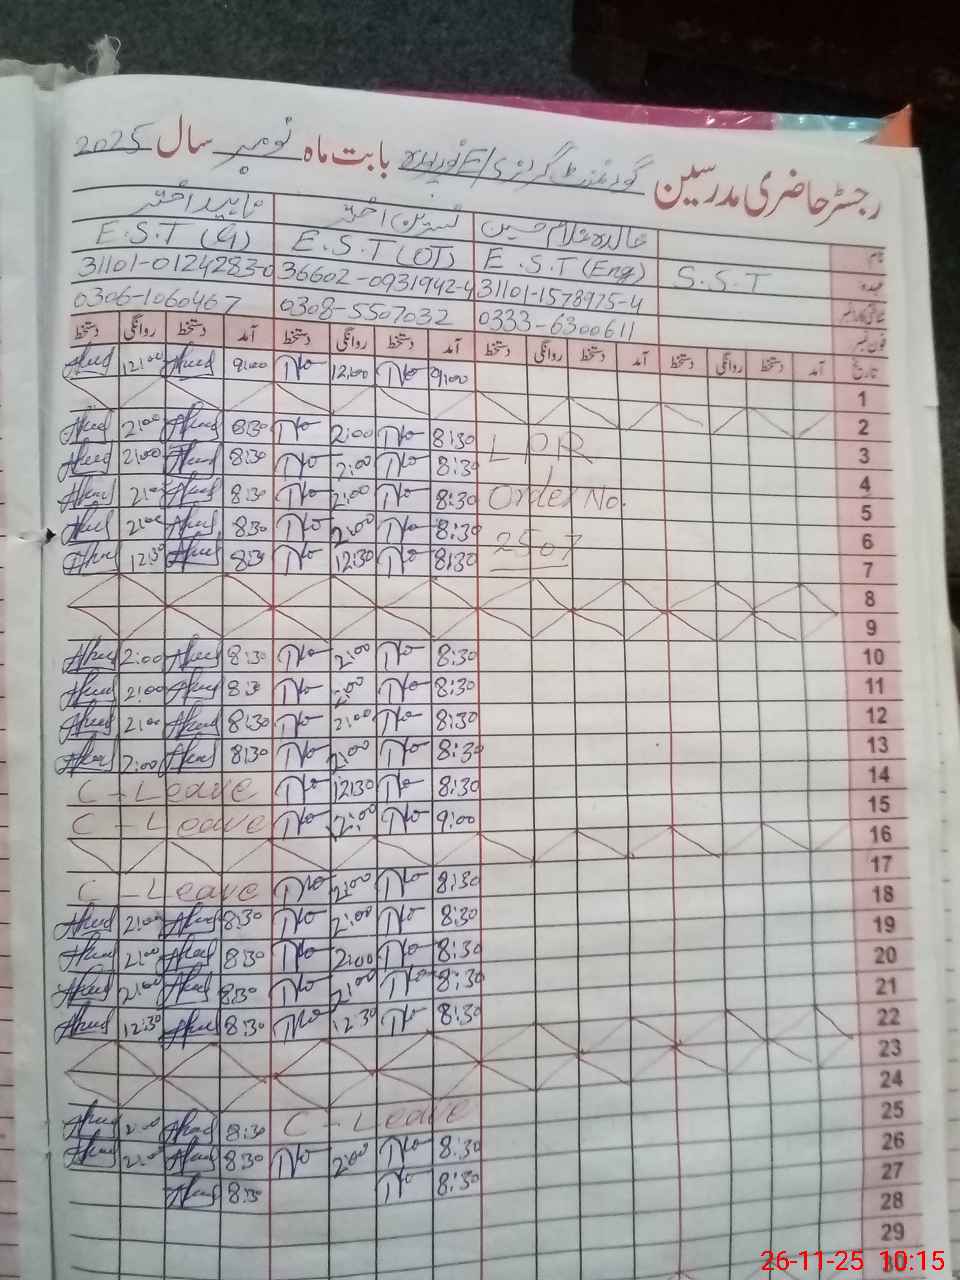 رجسٹر حاضری مدرسین گورنمنٹ گرلز E/S نورپورہ بابت ماہ نومبر سال 2025
نام خالدہ غلام حسین نسرین اختر ناہید اختر
عہدہ S.S.T E.S.T (Eng) E.S.T (OT) E.S.T (G)
شناختی کارڈ نمبر 31101-1578975-4 36602-0931942-4 31101-0124283-0
فون نمبر 0333-6300611 0308-5507032 0306-1060467
تاریخ آمد دستخط روانگی دستخط آمد دستخط روانگی دستخط آمد دستخط روانگی دستخط آمد دستخط روانگی دستخط
1 9:00 12:00 9:00 12:00
2
3 LPR 8:30 2:00 8:30 2:00
4 8:30 2:00 8:30 2:00
5 Order No. 8:30 2:00 8:30 2:00
6 2507 8:30 2:00 8:30 2:00
7 8:30 12:30 8:30 12:30
8
9
10 8:30 2:00 8:30 2:00
11 8:30 2:00 8:30 2:00
12 8:30 2:00 8:30 2:00
13 8:30 2:00 8:30 2:00
14 8:30 12:30 C-Leave
15 9:00 2:00 C-Leave
16
17 8:30 2:00 C-Leave
18 8:30 2:00 8:30 2:00
19 8:30 2:00 8:30 2:00
20 8:30 2:00 8:30 2:00
21 8:30 12:30 8:30 12:30
22
23
24 C-Leave 8:30 2:00
25 8:30 2:00 8:30 2:00
26 8:30 8:30
27
28
29
30
26-11-25 10:15